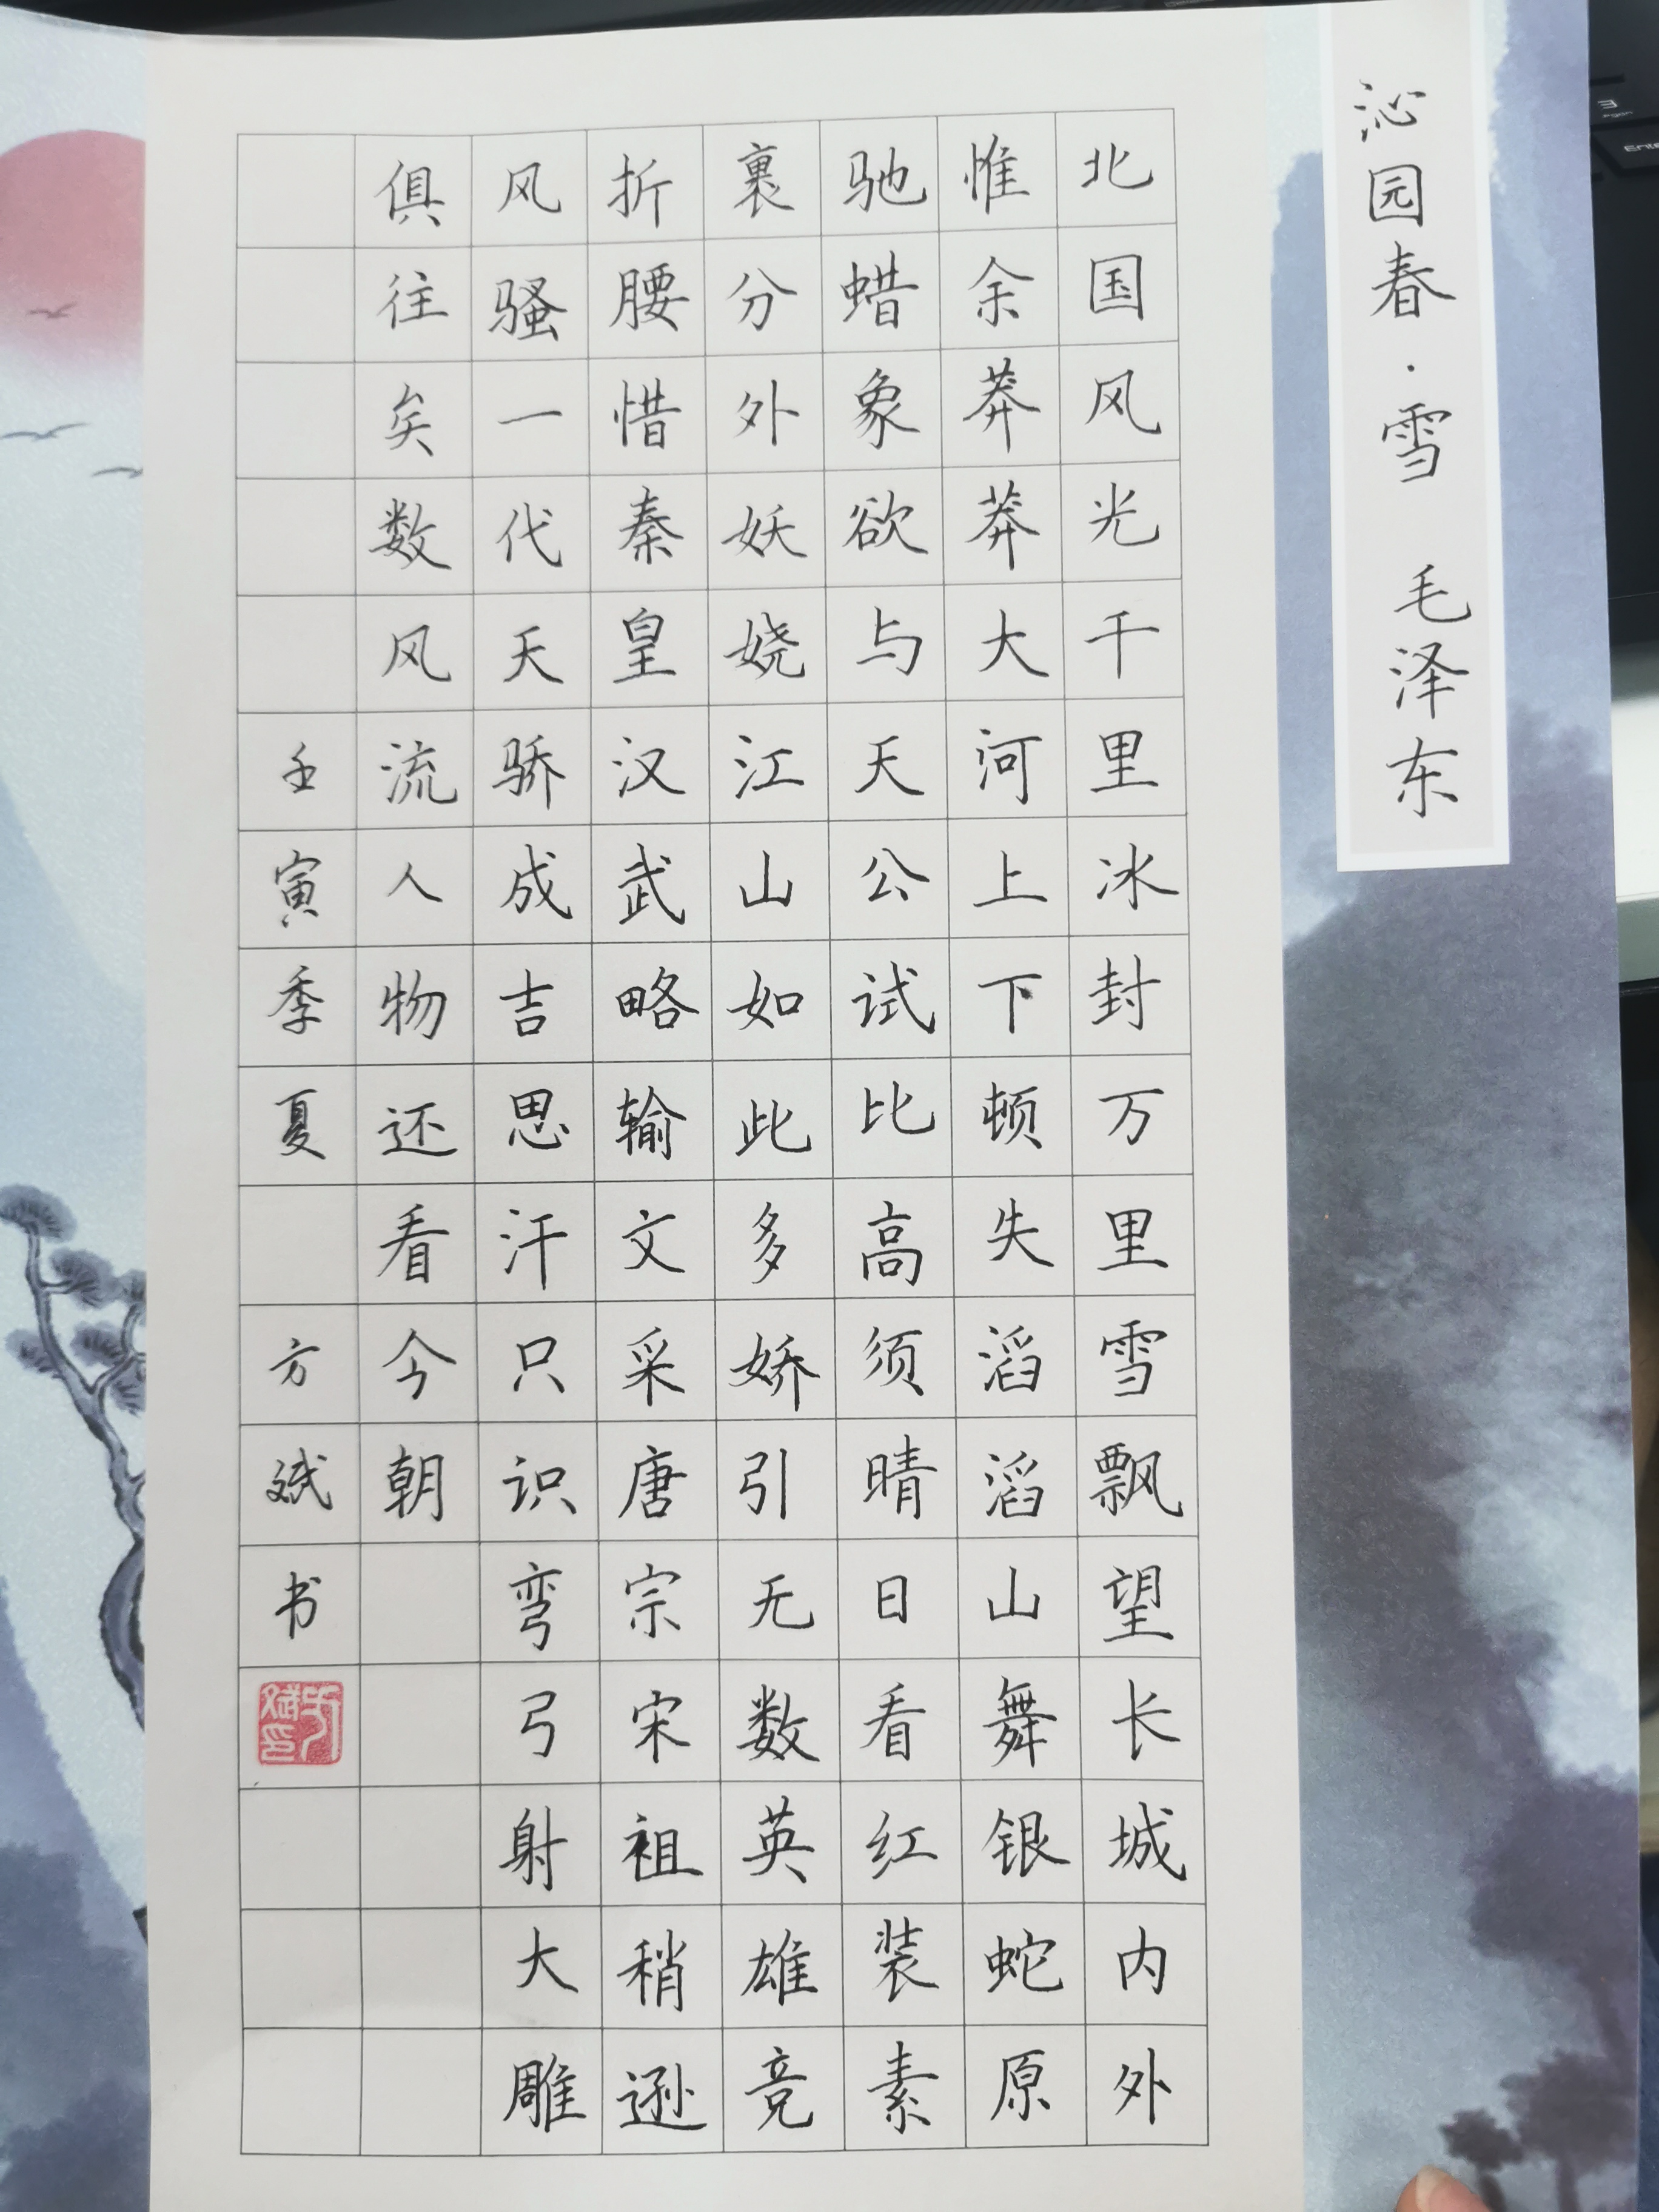 沁园春·雪 毛泽东
北国风光千里冰封万里雪飘望长城内外
惟余莽莽大河上下顿失滔滔山舞银蛇原
驰蜡象欲与天公试比高须晴日看红装素
裹分外妖娆江山如此多娇引无数英雄竞
折腰惜秦皇汉武略输文采唐宗宋祖稍逊
风骚一代天骄成吉思汗只识弯弓射大雕
俱往矣数风流人物还看今朝
壬寅季夏 方斌书
方斌印